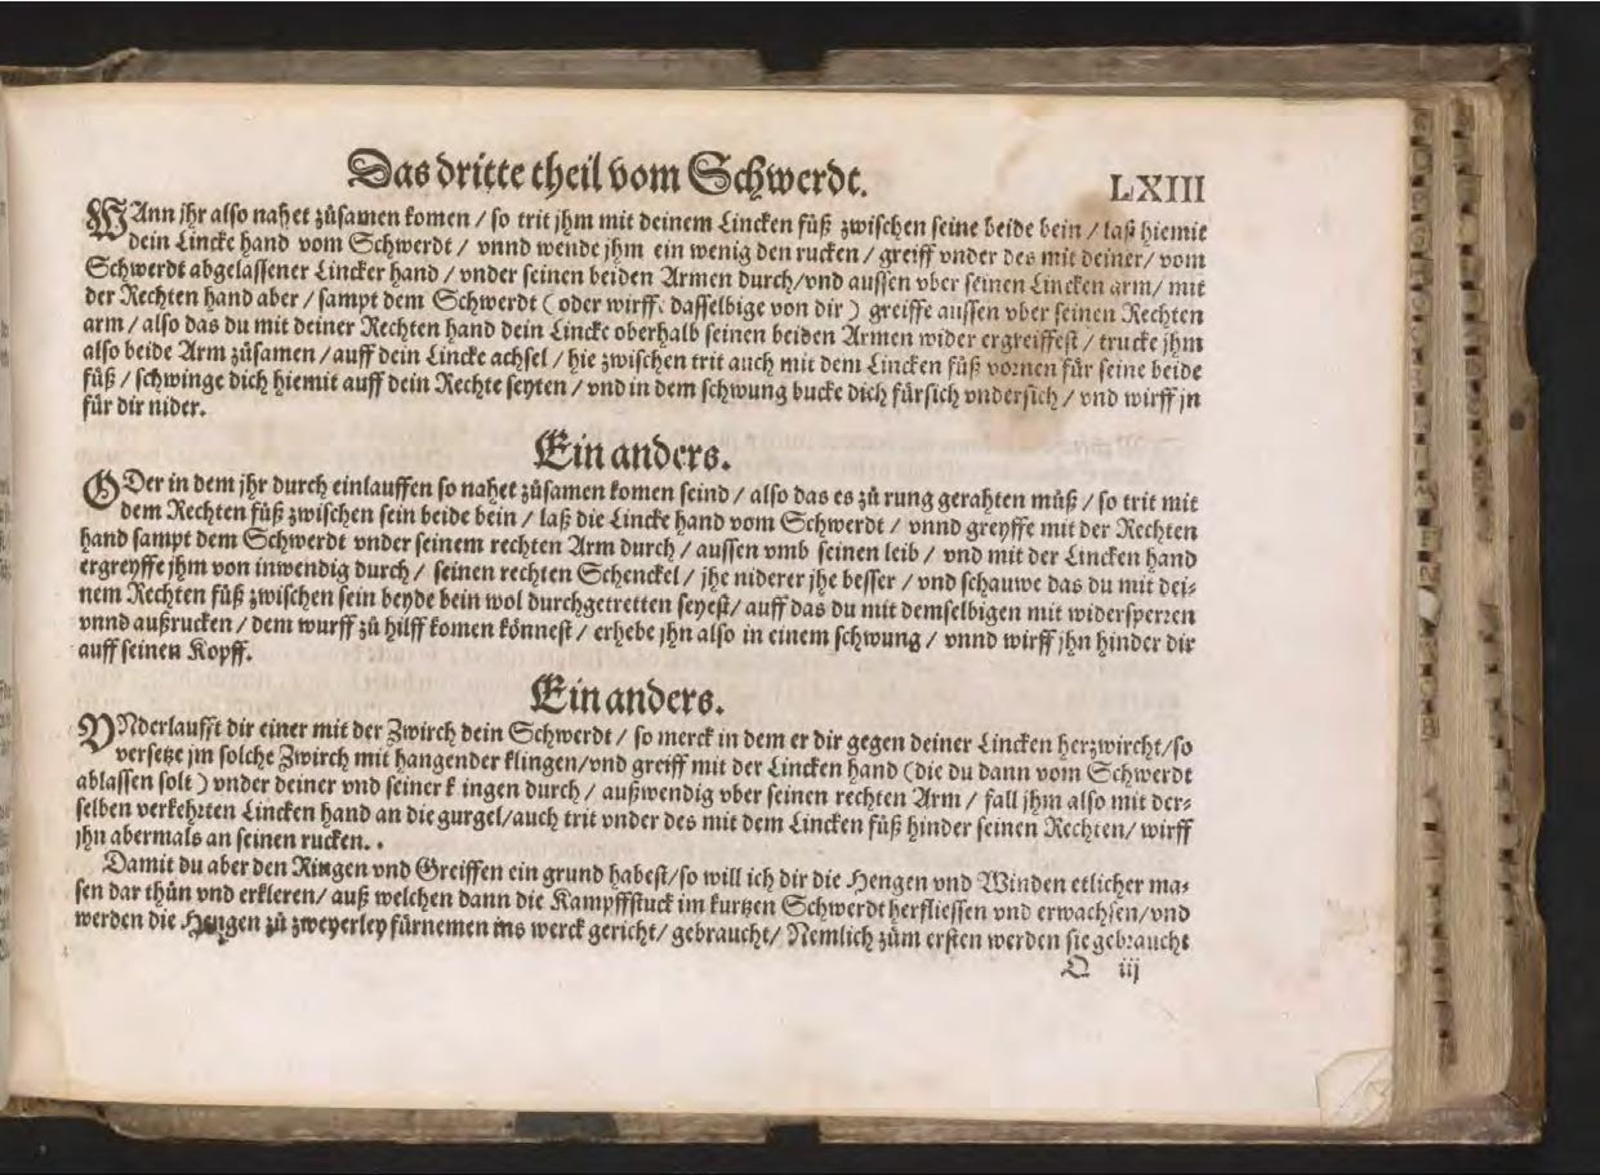 Das dritte theil vom Schwerdt. LXIII
WAnn jhr also nahet zůsamen komen / so trit jhm mit deinem Lincken fůß zwischen seine beide bein / laß hiemit
dein Lincke hand vom Schwerdt / vnnd wende jhm ein wenig den rucken / greiff vnder des mit deiner / vom
Schwerdt abgelassener Lincker hand / vnder seinen beiden Armen durch / vnd aussen vber seinen Lincken arm / mit
der Rechten hand aber / sampt dem Schwerdt ( oder wirff dasselbige von dir ) greiffe aussen vber seinen Rechten
arm / also das du mit deiner Rechten hand dein Lincke oberhalb seinen beiden Armen wider ergreiffest / trucke jhm
also beide Arm zůsamen / auff dein Lincke achsel / hie zwischen trit auch mit dem Lincken fůß vornen für seine beide
fůß / schwinge dich hiemit auff dein Rechte seyten / vnd in dem schwung bucke dich fürsich vndersich / vnd wirff jn
für dir nider.
Ein anders.
ODer in dem jhr durch einlauffen so nahet zůsamen komen seind / also das es zů rung gerahten můß / so trit mit
dem Rechten fůß zwischen sein beide bein / laß die Lincke hand vom Schwerdt / vnnd greyffe mit der Rechten
hand sampt dem Schwerdt vnder seinem rechten Arm durch / aussen vmb seinen leib / vnd mit der Lincken hand
ergreyffe jhm von inwendig durch / seinen rechten Schenckel / jhe niderer jhe besser / vnd schauwe das du mit dei⸗
nem Rechten fůß zwischen sein beyde bein wol durchgetretten seyest / auff das du mit demselbigen mit widersperren
vnnd außrucken / dem wurff zů hilff komen könnest / erhebe jhn also in einem schwung / vnnd wirff jhn hinder dir
auff seinen Kopff.
Ein anders.
VNderlaufft dir einer mit der Zwirch dein Schwerdt / so merck in dem er dir gegen deiner Lincken herzwircht / so
versetze jm solche Zwirch mit hangender klingen / vnd greiff mit der Lincken hand (die du dann vom Schwerdt
ablassen solt) vnder deiner vnd seiner k ingen durch / außwendig vber seinen rechten Arm / fall jhm also mit der⸗
selben verkehrten Lincken hand an die gurgel / auch trit vnder des mit dem Lincken fůß hinder seinen Rechten / wirff
jhn abermals an seinen rucken.
Damit du aber den Ringen vnd Greiffen ein grund habest / so will ich dir die Hengen vnd Winden etlicher ma⸗
sen dar thůn vnd erkleren / auß welchen dann die Kampffstuck im kurtzen Schwerdt herfliessen vnd erwachsen / vnd
werden die Hengen zů zweyerley fürnemen ins werck gericht / gebraucht / Nemlich zům ersten werden sie gebraucht
Q iij